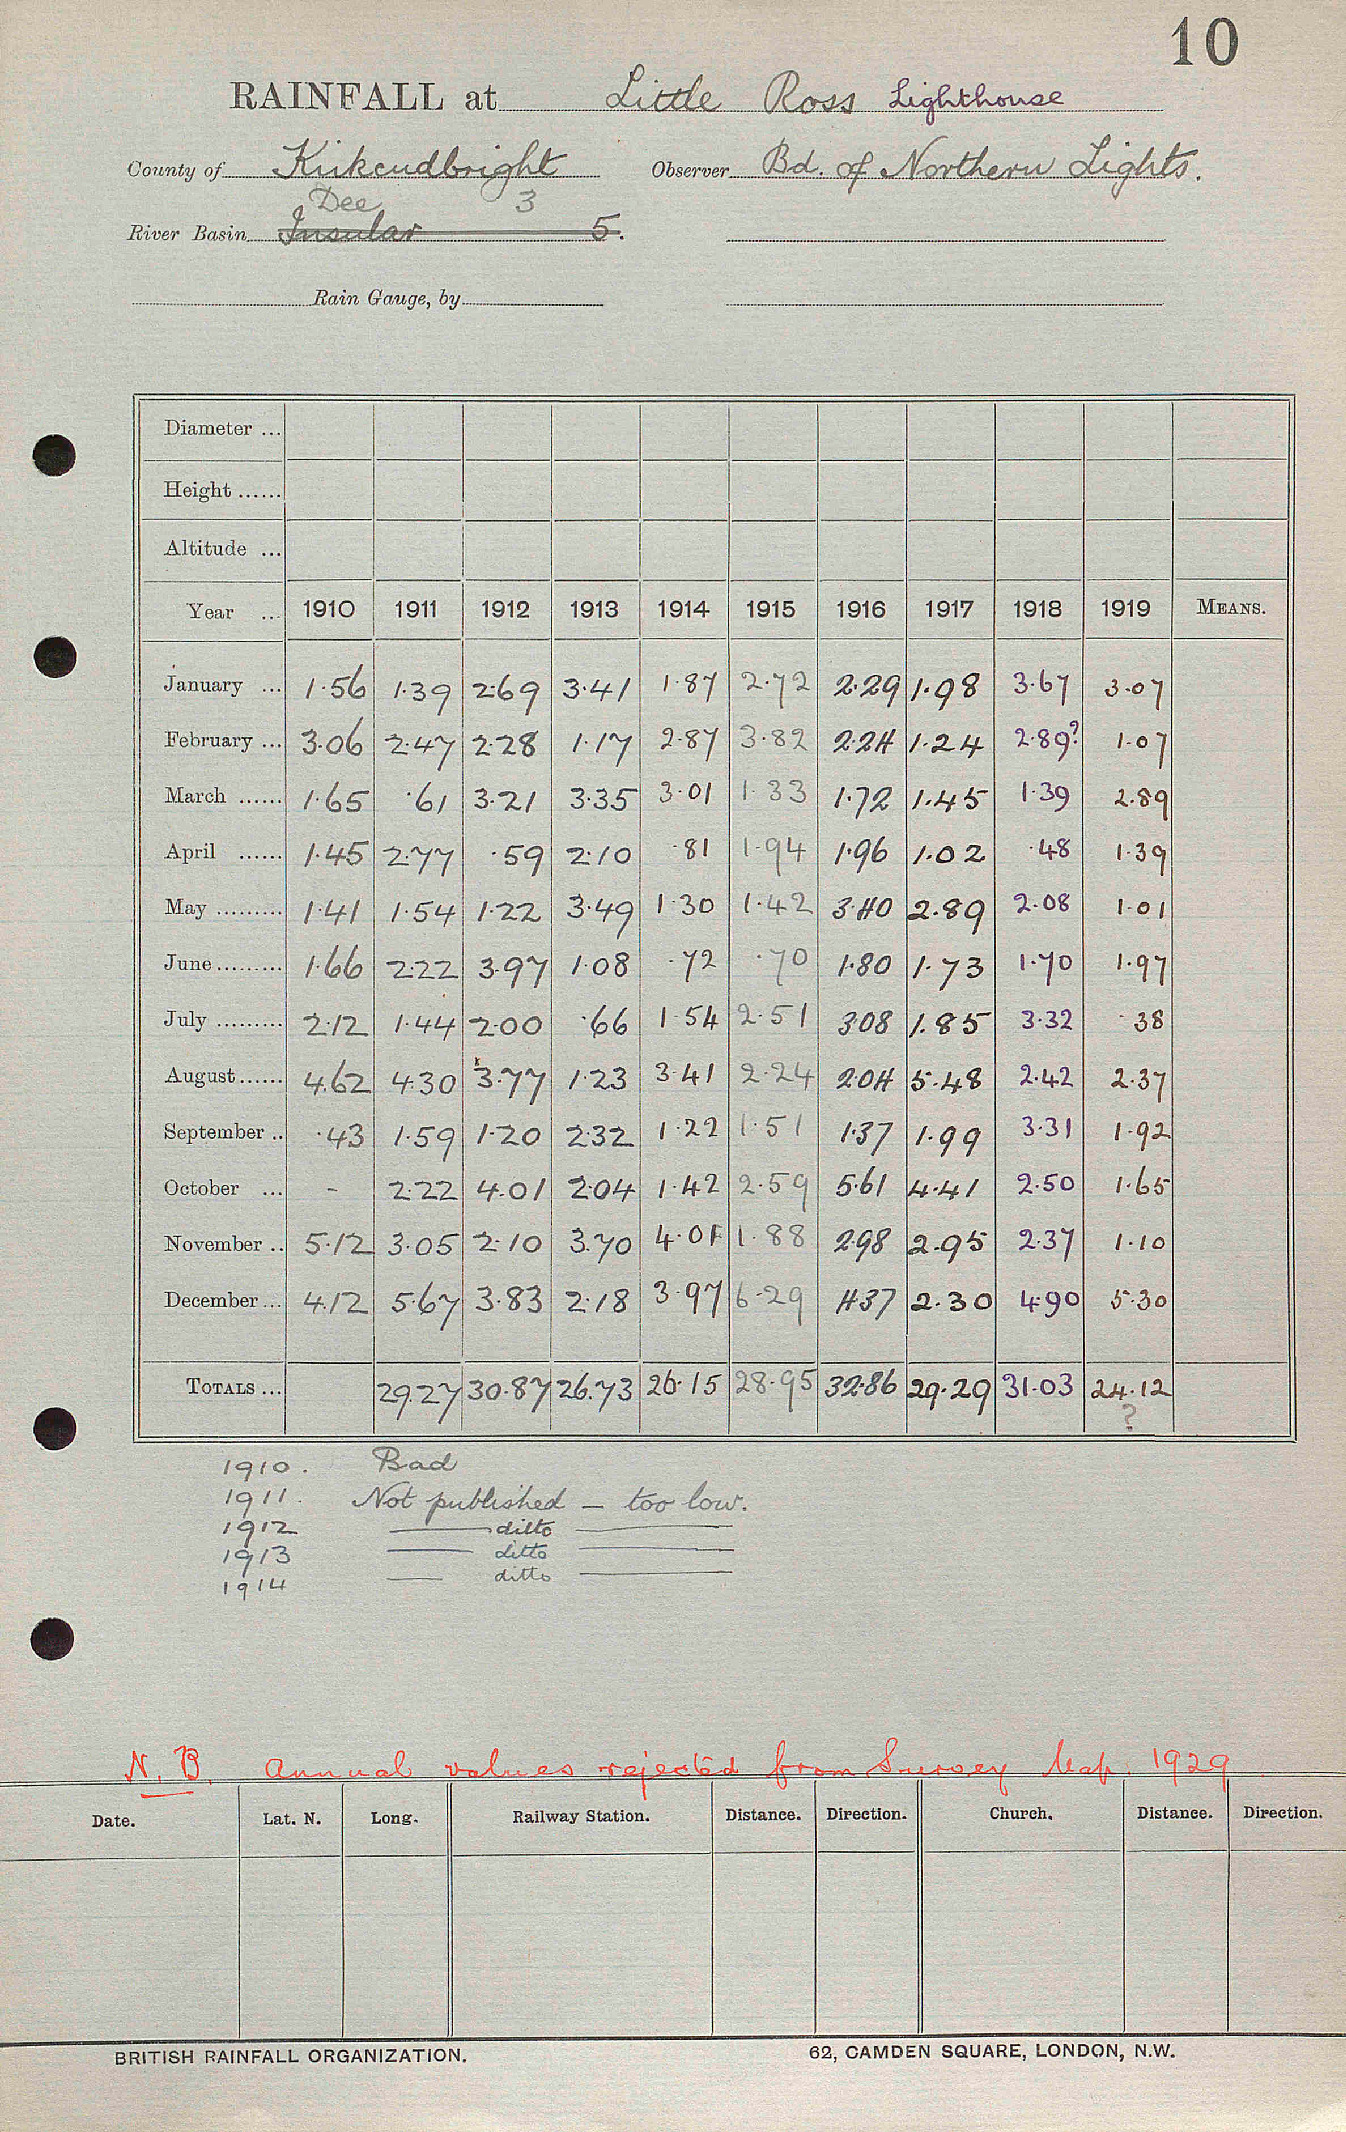 10
RAINFALL at Little Ross Lighthouse
County of Kirkcudbright Observer Bd. of Northern Lights.
Dee 3
River Basin Insular 5.
Rain Gauge, by
Diameter ...
Height ......
Altitude ...
Year ... 1910 1911 1912 1913 1914 1915 1916 1917 1918 1919 MEANS.
January ... 1.56 1.39 2.69 3.41 1.87 2.72 2.29 1.98 3.67 3.07
February ... 3.06 2.47 2.28 1.17 2.87 3.82 2.24 1.24 2.89? 1.07
March ...... 1.65 .61 3.21 3.35 3.01 1.33 1.72 1.45 1.39 2.89
April ...... 1.45 2.77 .59 2.10 .81 1.94 1.96 1.02 .48 1.39
May ......... 1.41 1.54 1.22 3.49 1.30 1.42 3.40 2.89 2.08 1.01
June ......... 1.66 2.22 3.97 1.08 .72 .70 1.80 1.73 1.70 1.97
July ......... 2.12 1.44 2.00 .66 1.54 2.51 3.08 1.85 3.32 .38
August ...... 4.62 4.30 3.77 1.23 3.41 2.24 2.04 5.48 2.42 2.37
September .. .43 1.59 1.20 2.32 1.22 1.51 1.37 1.99 3.31 1.92
October ... - 2.22 4.01 2.04 1.42 2.59 5.61 4.41 2.50 1.65
November .. 5.12 3.05 2.10 3.70 4.01 1.88 2.98 2.95 2.37 1.10
December ... 4.12 5.67 3.83 2.18 3.97 6.29 4.37 2.30 4.90 5.30
TOTALS ... 29.27 30.87 26.73 26.15 28.95 32.86 29.29 31.03 24.12
?
1910. Bad
1911. Not published - too low.
1912 ditto
1913 ditto
1914 ditto
N.B. Annual values rejected from Survey Map. 1929.
Date. Lat. N. Long. Railway Station. Distance. Direction. Church. Distance. Direction.
BRITISH RAINFALL ORGANIZATION. 62, CAMDEN SQUARE, LONDON, N.W.